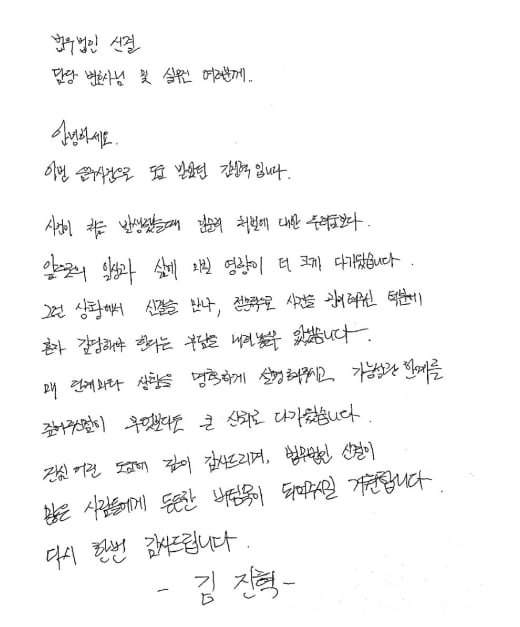 법무법인 신결
담당 변호사님 및 실무진 여러분께..
안녕하세요.
이번 음주사건으로 도움 받았던 김진혁 입니다.
사건이 처음 발생했을때 단순히 처벌에 대한 두려움보다.
앞으로의 일상과 삶에 미칠 영향이 더 크게 다가왔습니다.
그런 상황에서 신결을 만나, 전문적으로 사건을 관리해주신 덕분에
혼자 감당해야 한다는 부담을 내려놓을수 있었습니다.
매 단계마다 상황을 명확하게 설명해주시고, 가능성과 한계를
짚어주신점이 무엇보다도 큰 신뢰로 다가왔습니다.
진심 어린 도움에 깊이 감사드리며, 법무법인 신결이
많은 사람들에게 든든한 버팀목이 되어주시길 기원합니다.
다시 한번 감사드립니다.
- 김 진혁 -